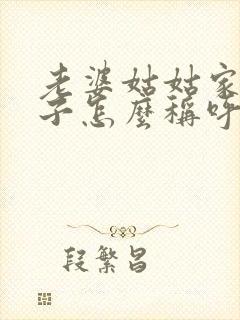 老婆姑姑家
子怎麼稱呼
段繁昌